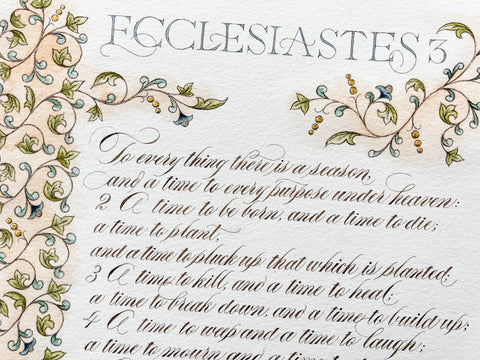 ECCLESIASTES 3
To every thing there is a season,
and a time to every purpose under heaven:
2 A time to be born, and a time to die;
a time to plant,
and a time to pluck up that which is planted;
3 A time to kill, and a time to heal;
a time to break down, and a time to build up;
4 A time to weep and a time to laugh;
a time to mourn and a time